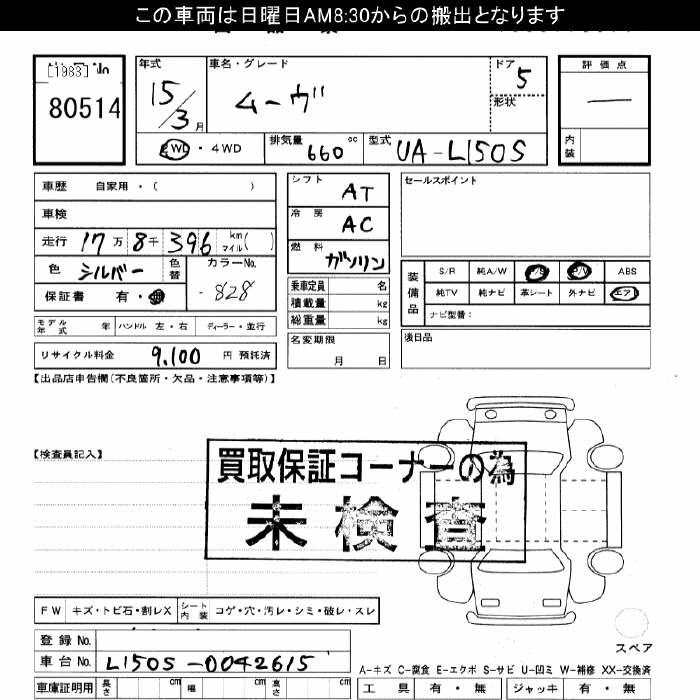 この車両は日曜日AM8:30からの搬出となります
[1983]
80514
年式
15/3 月
車名・グレード
ムーヴ
ドア 5
形状
評価点
―
内装
2WD・4WD
排気量 660 cc
型式 UA-L150S
車歴 自家用・( )
車検
走行 17万8千396 km マイル( )
色 シルバー 色替 カラーNo. -828
保証書 有・
モデル年式 年 ハンドル 左・右 ディーラー・並行
リサイクル料金 9,100 円 預託済
シフト AT
冷房 AC
燃料 ガソリン
乗車定員 名
積載量 kg
総重量 kg
名変期限
月 日
セールスポイント
装備品
S/R 純A/W P/S P/W ABS
純TV 純ナビ 革シート 外ナビ エアB
ナビ型番：
後日品
【出品店申告欄(不良箇所・欠品・注意事項等)】
【検査員記入】
買取保証コーナーの為
未検査
FW キズ・トビ石・割レX シート内装 コゲ・穴・汚レ・シミ・破レ・スレ
登録No.
車台No. L150S-0042615
車庫証明用 長さ cm 幅 cm 高さ cm
スペア
A-キズ C-腐食 E-エクボ S-サビ U-凹ミ W-補修 XX-交換済
工具 有・無 ジャッキ 有・無